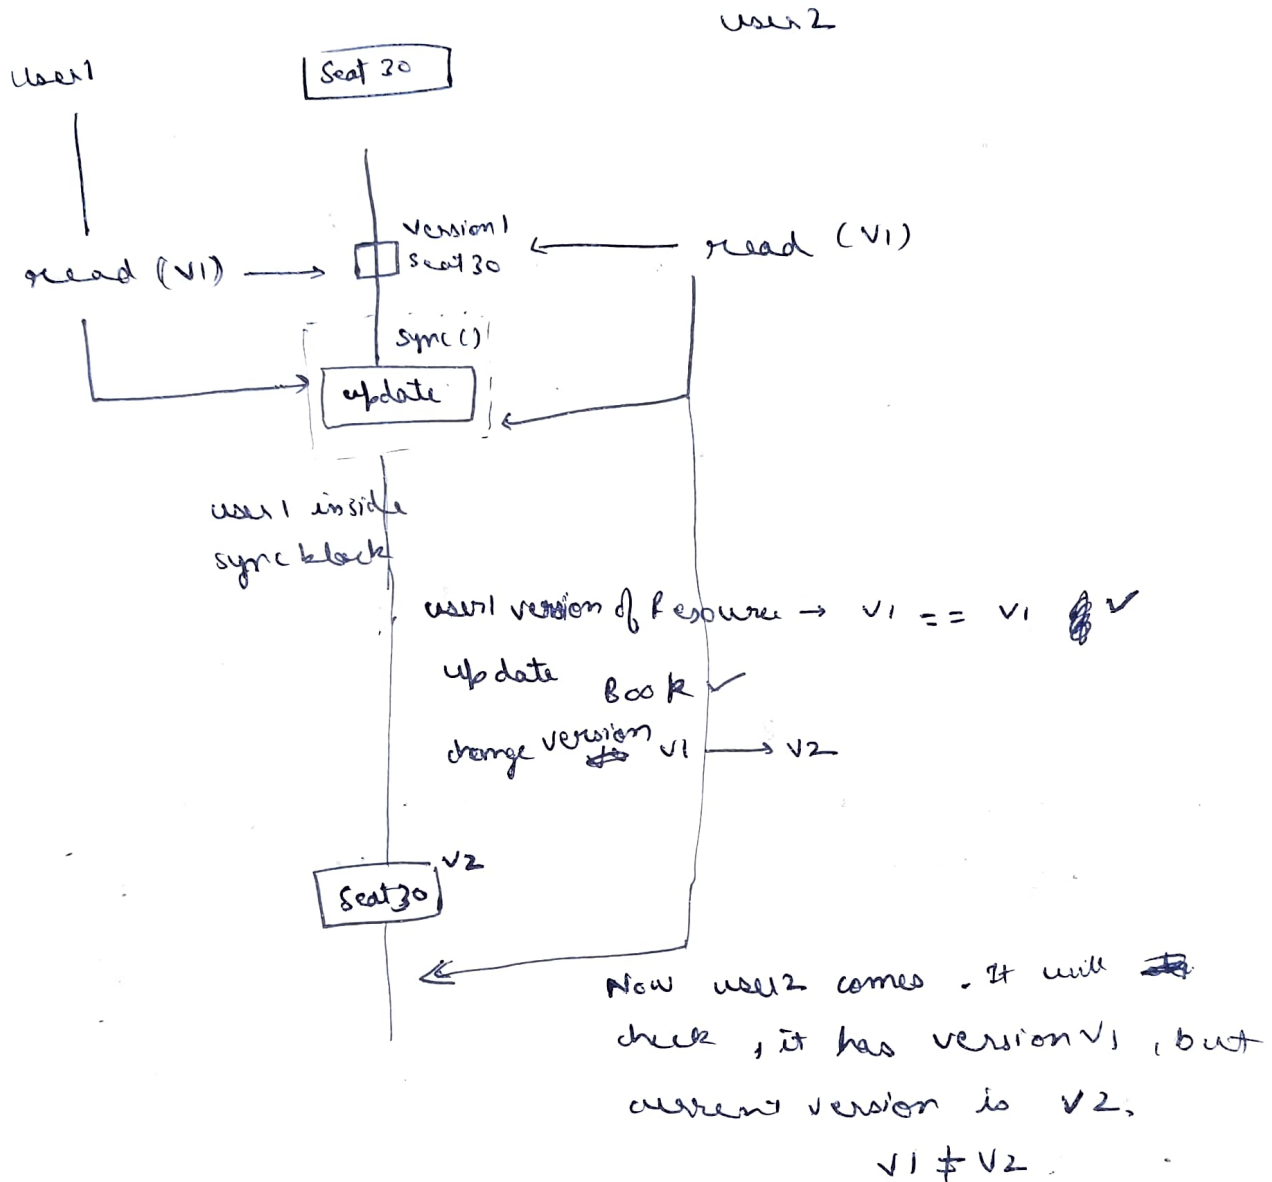 user2
user1
Seat 30
version1
seat 30
read (V1)
read (V1)
sync()
update
user1 inside
sync block
user1 version of Resource → V1 == V1 ✓
update Book ✓
change version V1 → V2
V2
Seat30
Now user2 comes. It will
check, it has version V1, but
current version is V2.
V1 ≠ V2.